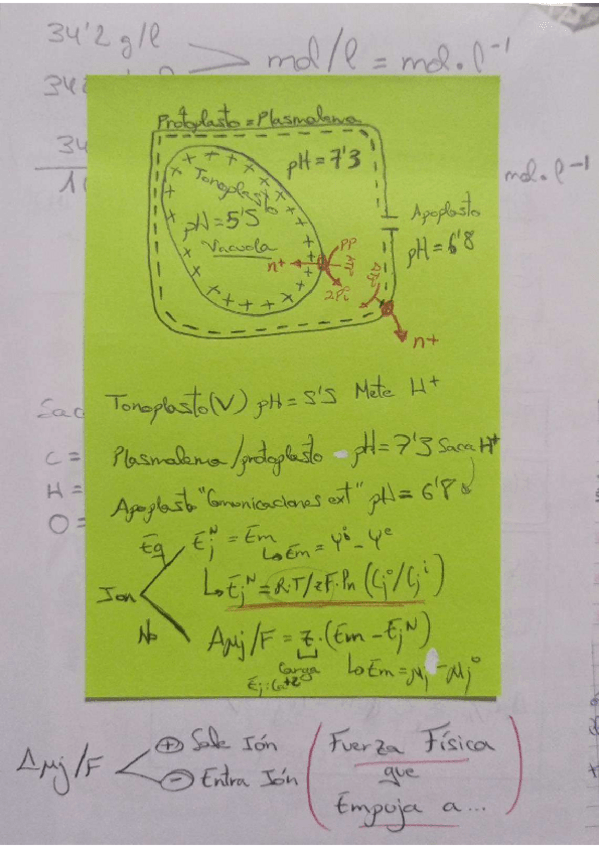 34'2 g/l
mol/l = mol · l⁻¹
34
34
1
mol · l⁻¹
Protoplasto = Plasmalema
pH = 7'3
Tonoplasto
pH = 5'5
Vacuola
Apoplasto
pH = 6'8
n+
PP
2Pi
n+
Sac
Tonoplasto (V) pH = 5'5 Mete H+
C =
Plasmalema/protoplasto pH = 7'3 Saca H+
H =
Apoplasto "Comunicaciones ext" pH = 6'8
O =
Eq
Ej^N = Em
↳ Em = Ψ^i - Ψ^e
Ion
↳ Ej^N = R·T/zF·Ln (Cj^o/Cj^i)
No
Δμj/F = z · (Em - Ej^N)
Carga
Ej: Ca+2
↳ Em = μj^i - μj^o
Δμj/F
+ Sale Ión
- Entra Ión
(Fuerza Física
que
Empuja a...)